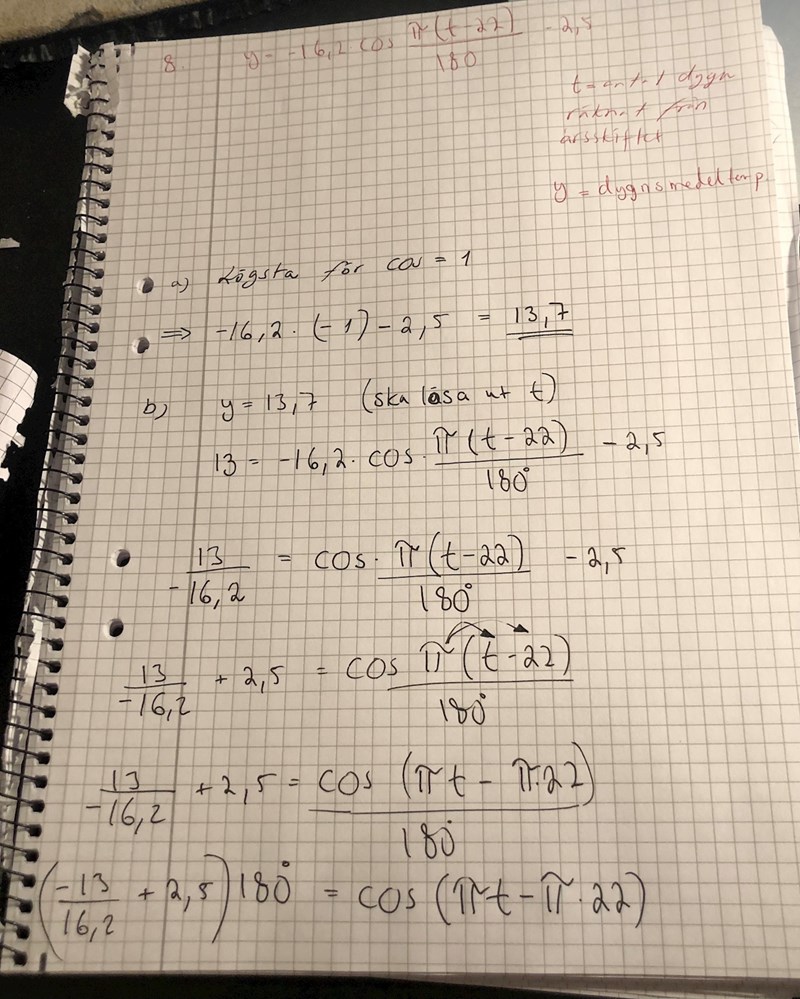 8. y = -16,2 cos π(t-22)/180 - 2,5
t = antal dygn
räknat från
årsskiftet
y = dygnsmedeltemp.
a) Högsta för cos = 1
⇒ -16,2 · (-1) - 2,5 = 13,7
b) y = 13,7 (ska lösa ut t)
13 = -16,2 · cos · π(t-22)/180° - 2,5
13/-16,2 = cos · π(t-22)/180° - 2,5
13/-16,2 + 2,5 = cos π(t-22)/180°
13/-16,2 + 2,5 = cos (πt - π·22)/180°
(-13/16,2 + 2,5) 180° = cos (πt - π·22)